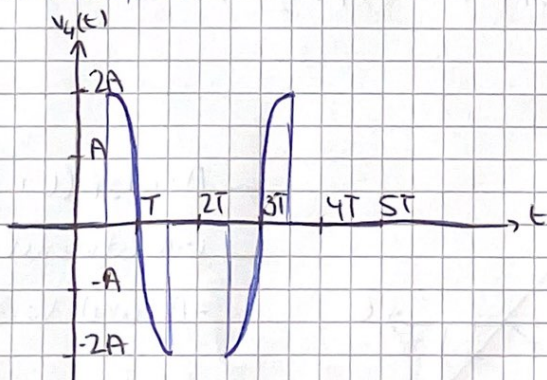 v₄(t)
2A
A
T 2T 3T 4T 5T t
-A
-2A